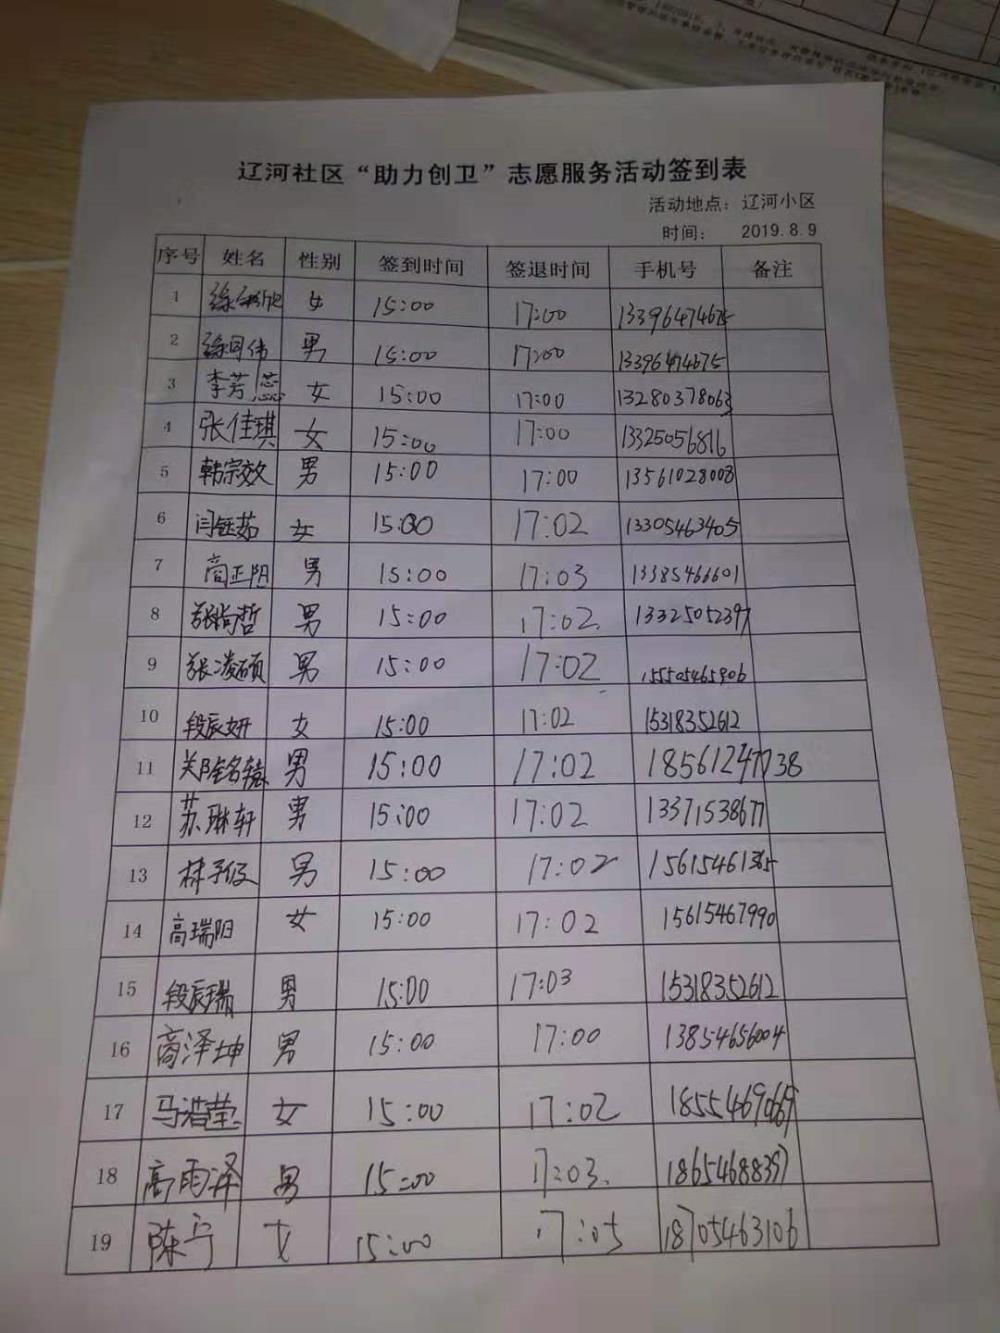 辽河社区“助力创卫”志愿服务活动签到表
活动地点：辽河小区
时间： 2019.8.9
序号 姓名 性别 签到时间 签退时间 手机号 备注
1 女 15:00 17:00 13396474675
2 徐同伟 男 15:00 17:00 13396474675
3 李芳蕊 女 15:00 17:00 13280378063
4 张佳琪 女 15:00 17:00 13325056816
5 韩宗效 男 15:00 17:00 13561028008
6 闫钰茹 女 15:00 17:02 13305463405
7 高正阳 男 15:00 17:03 13385466601
8 张尚哲 男 15:00 17:02. 13325052397
9 张凌硕 男 15:00 17:02 155505465906
10 段辰妍 女 15:00 17:02 15318352612
11 男 15:00 17:02 18561247738
12 苏琳轩 男 15:00 17:02 13371538677
13 男 15:00 17:02 15615461365
14 高瑞阳 女 15:00 17:02 15615467990
15 段辰瑞 男 15:00 17:03 15318352612
16 高泽坤 男 15:00 17:00 13854656004
17 马浩莹 女 15:00 17:02
18 高雨泽 男 15:00 17:03. 18654688397
19 陈宁 女 15:00 17:05 18705463106